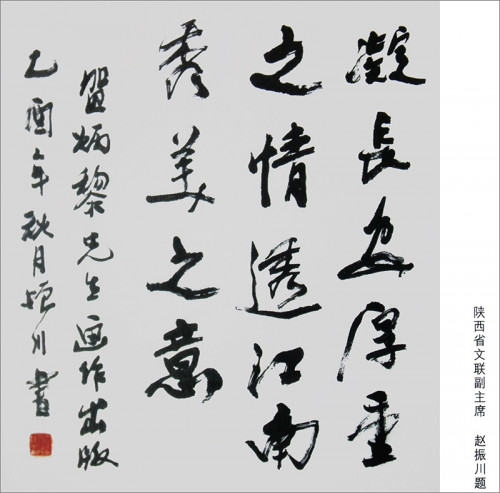 凝長安厚重
之情透江南
秀美之意
炳黎先生画作出版
乙酉年秋月振川書
陕西省文联副主席 赵振川题